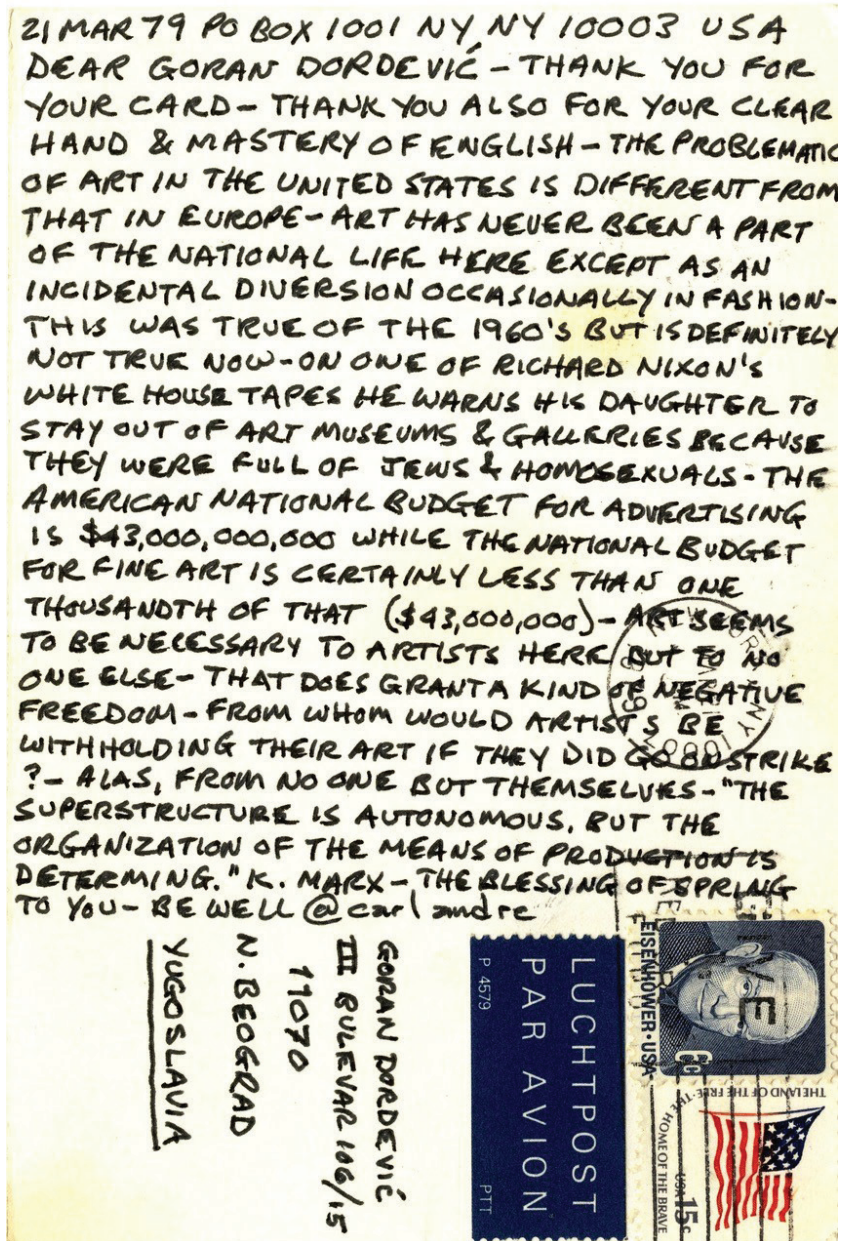 21 MAR 79 PO BOX 1001 NY, NY 10003 USA
DEAR GORAN DORDEVIĆ – THANK YOU FOR
YOUR CARD – THANK YOU ALSO FOR YOUR CLEAR
HAND & MASTERY OF ENGLISH – THE PROBLEMATIC
OF ART IN THE UNITED STATES IS DIFFERENT FROM
THAT IN EUROPE – ART HAS NEVER BEEN A PART
OF THE NATIONAL LIFE HERE EXCEPT AS AN
INCIDENTAL DIVERSION OCCASIONALLY IN FASHION –
THIS WAS TRUE OF THE 1960'S BUT IS DEFINITELY
NOT TRUE NOW – ON ONE OF RICHARD NIXON'S
WHITE HOUSE TAPES HE WARNS HIS DAUGHTER TO
STAY OUT OF ART MUSEUMS & GALLERIES BECAUSE
THEY WERE FULL OF JEWS & HOMOSEXUALS – THE
AMERICAN NATIONAL BUDGET FOR ADVERTISING
IS $43,000,000,000 WHILE THE NATIONAL BUDGET
FOR FINE ART IS CERTAINLY LESS THAN ONE
THOUSANDTH OF THAT ($43,000,000) – ART SEEMS
TO BE NECESSARY TO ARTISTS HERE BUT TO NO
ONE ELSE – THAT DOES GRANT A KIND OF NEGATIVE
FREEDOM – FROM WHOM WOULD ARTISTS BE
WITHHOLDING THEIR ART IF THEY DID GO ON STRIKE
? – ALAS, FROM NO ONE BUT THEMSELVES – "THE
SUPERSTRUCTURE IS AUTONOMOUS, BUT THE
ORGANIZATION OF THE MEANS OF PRODUCTION IS
DETERMING." K. MARX – THE BLESSING OF SPRING
TO YOU – BE WELL @ carl andre
GORAN DORDEVIĆ
III BULEVAR 106/15
11070
N. BEOGRAD
YUGOSLAVIA
LUCHTPOST
PAR AVION
P 4579
PTT
EISENHOWER · USA
6c
THE LAND OF THE FREE · THE HOME OF THE BRAVE
USA 15c